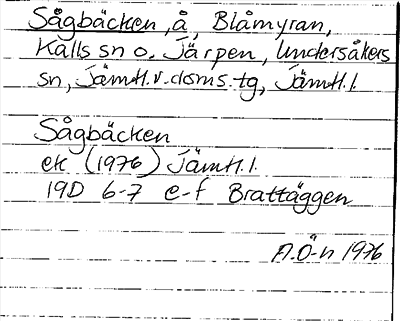 Sågbäcken, å, Blåmyran,
Kalls sn o. Järpen, Undersåkers
sn, Jämtl.v.doms.tg, Jämtl.l.
Sågbäcken
ek (1976) Jämtl.l.
19D 6-7 e-f Brattäggen
A.Ö-n 1976